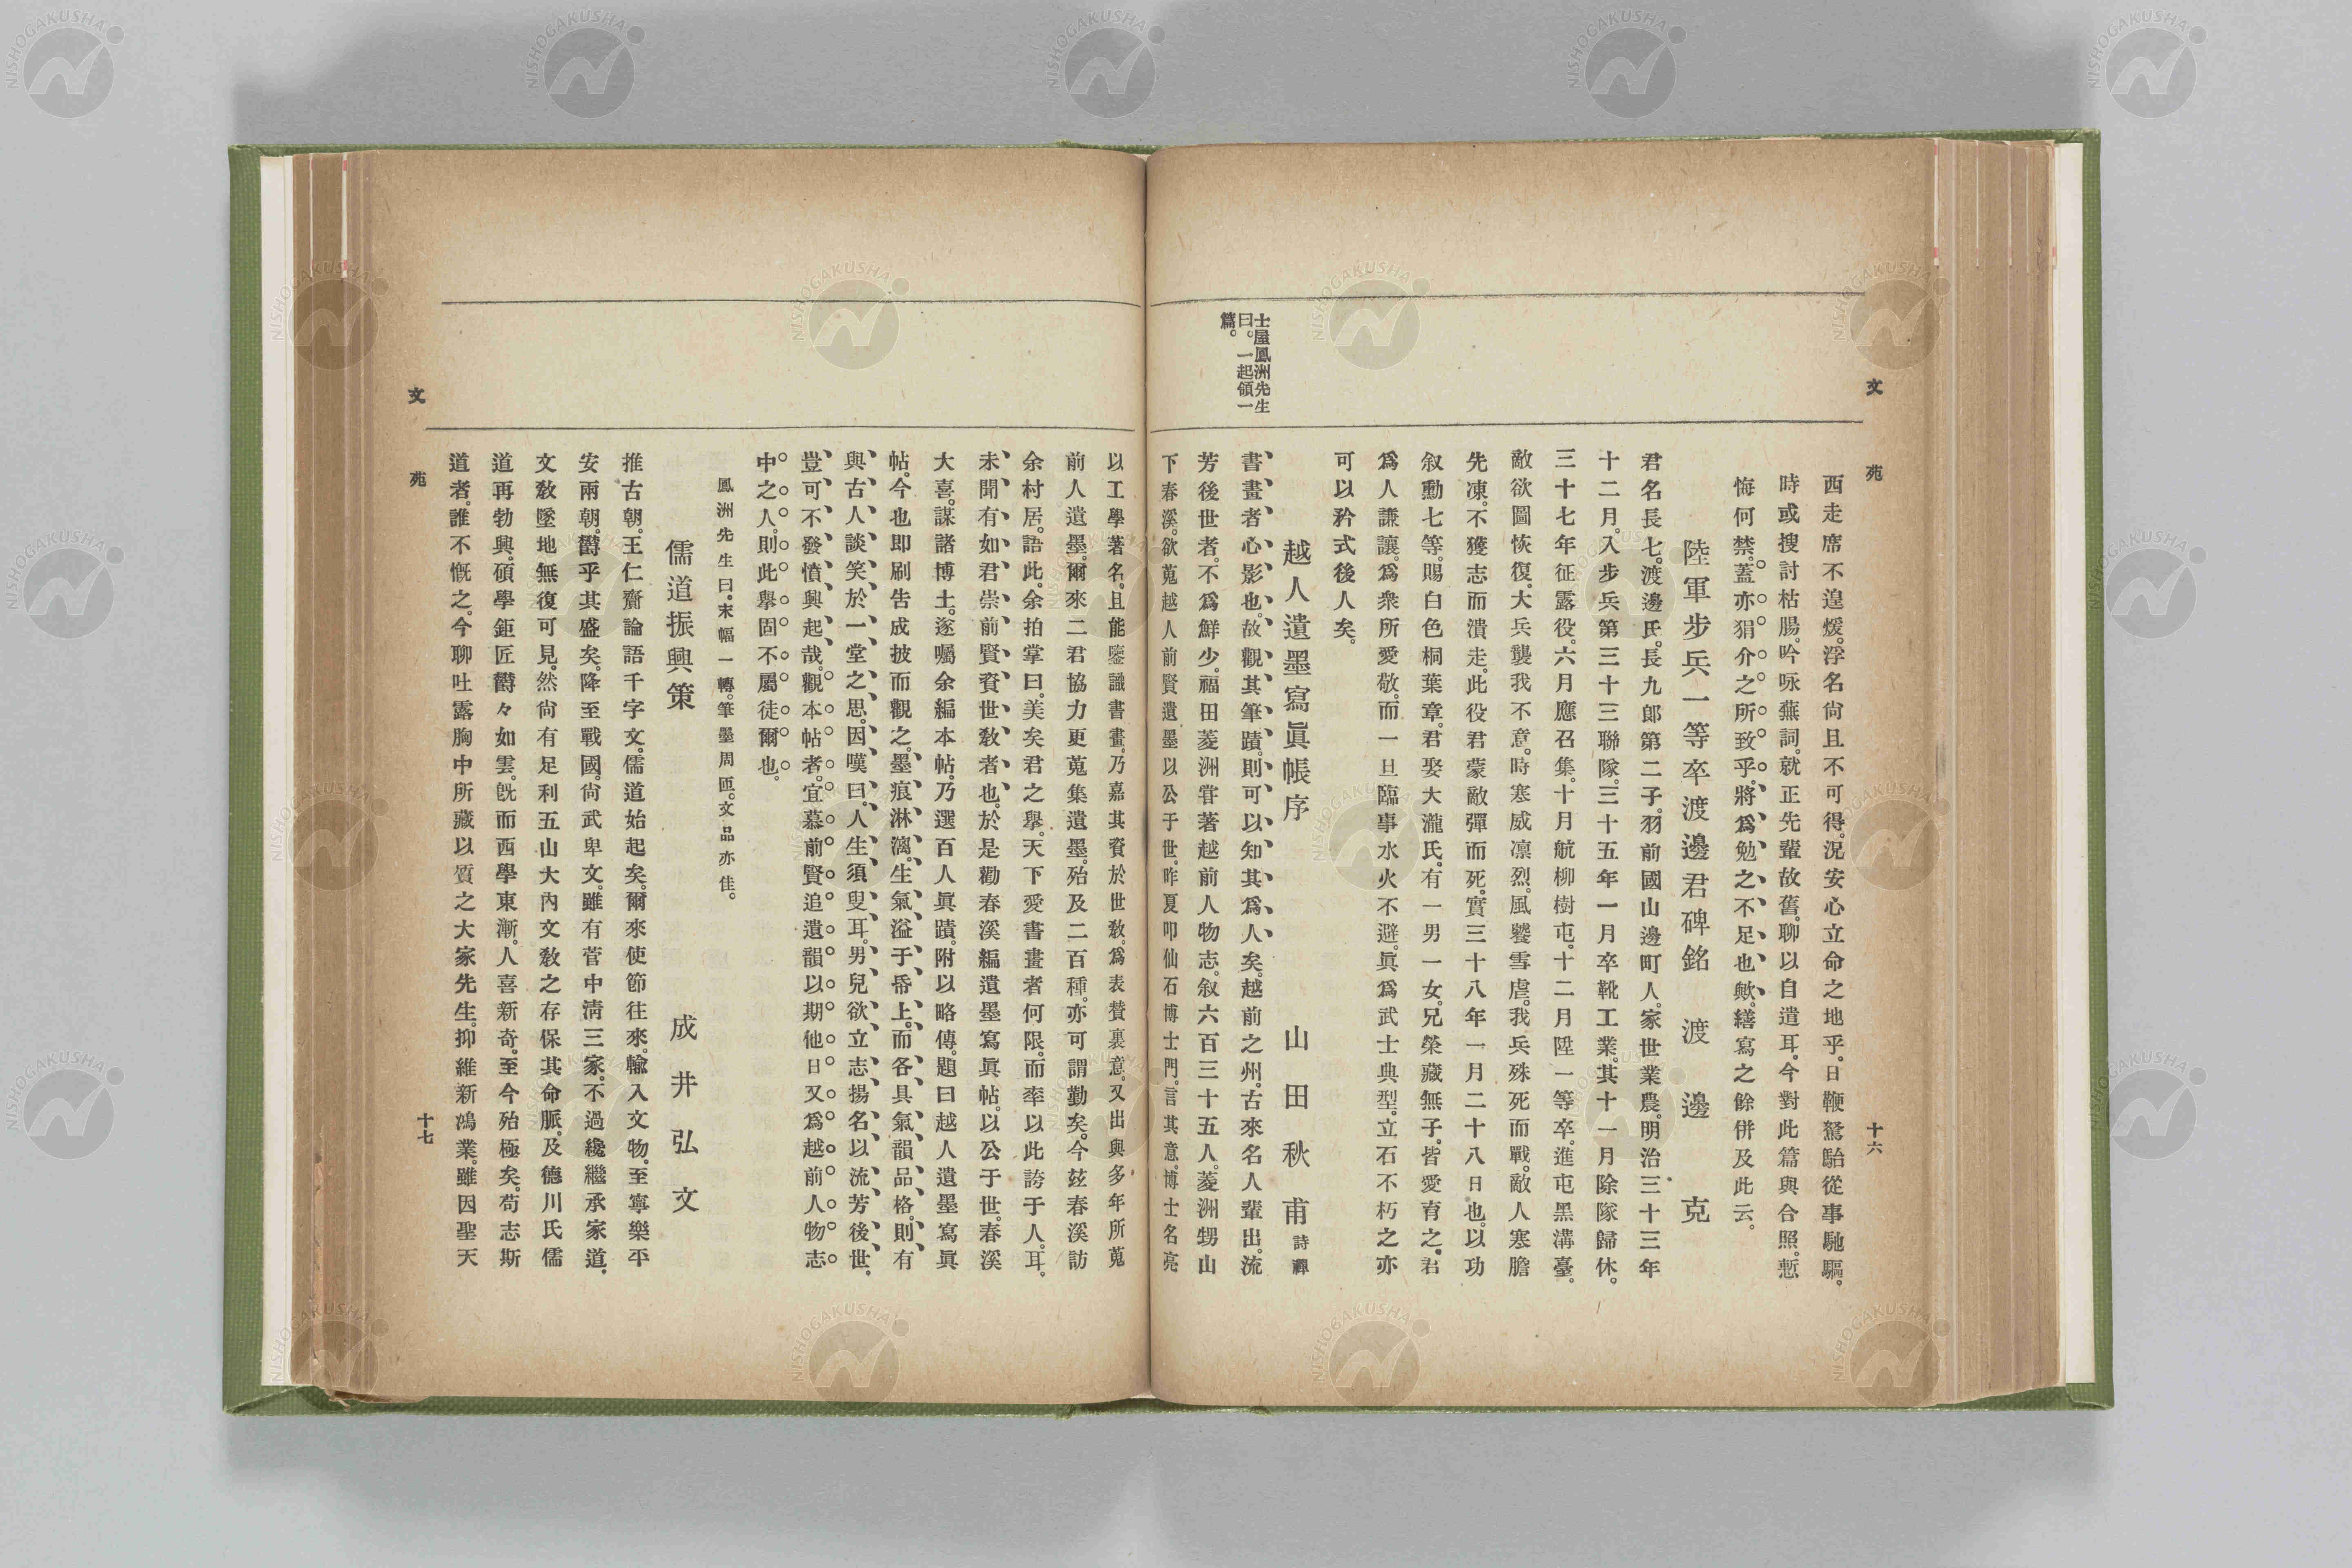 文苑
十六
西走席不遑煖。浮名尙且不可得。况安心立命之地乎。日鞭駑駘從事馳驅。
時或搜討枯腸。吟咏蕪詞。就正先輩故舊。聊以自遣耳。今對此篇與合照。慙
悔何禁。蓋亦狷介之所致乎。將爲勉之不足也歟。繕寫之餘併及此云。
陸軍步兵一等卒渡邊君碑銘 渡邊克
君名長七。渡邊氏。長九郞第二子。羽前國山邊町人。家世業農。明治三十三年
十二月。入步兵第三十三聯隊。三十五年一月卒靴工業。其十一月除隊歸休。
三十七年征露役。六月應召集。十月航柳樹屯。十二月陞一等卒。進屯黑溝臺。
敵欲圖恢復。大兵襲我不意。時寒威凛烈。風饕雪虐。我兵殊死而戰。敵人寒膽
先凍。不獲志而潰走。此役君蒙敵彈而死。實三十八年一月二十八日也。以功
叙勳七等。賜白色桐葉章。君娶大瀧氏。有一男一女。兄榮藏無子。皆愛育之。君
爲人謙讓。爲衆所愛敬。而一旦臨事水火不避。眞爲武士典型。立石不朽之亦
可以矜式後人矣。
越人遺墨寫眞帳序 山田秋甫 詩禪
士屋鳳洲先生
曰。一起領一
篇。
書畫者心影也。故觀其筆蹟。則可以知其爲人矣。越前之州。古來名人輩出。流
芳後世者。不爲鮮少。福田菱洲甞著越前人物志。叙六百三十五人。菱洲甥山
下春溪。欲蒐越人前賢遺墨以公于世。昨夏叩仙石博士門。言其意。博士名亮
以工學著名。且能鑒識書畫。乃嘉其資於世敎。爲表賛裏意。又出與多年所蒐
前人遺墨。爾來二君協力更蒐集遺墨。殆及二百種。亦可謂勤矣。今玆春溪訪
余村居。語此。余拍掌曰。美矣君之擧。天下愛書畫者何限。而率以此誇于人。耳。
未聞有如君崇前賢資世敎者也。於是勸春溪編遺墨寫眞帖。以公于世。春溪
大喜。謀諸博士。遂囑余編本帖。乃選百人眞蹟。附以略傳。題曰越人遺墨寫眞
帖。今也卽刷吿成披而觀之。墨痕淋漓。生氣溢于帋上。而各具氣韻品格。則有
與古人談笑於一堂之思。因嘆曰。人生須臾耳。男兒欲立志揚名以流芳後世。
豈可不發憤興起哉。觀本帖者。宜慕前賢追遺韻以期他日又爲越前人物志
中之人。則此擧固不屬徒爾也。
鳳洲先生曰。末幅一轉。筆墨周匝。文品亦佳。
儒道振興策 成井弘文
推古朝。王仁齎論語千字文。儒道始起矣。爾來使節往來。輸入文物。至寧樂平
安兩朝。欝乎其盛矣。降至戰國。尙武卑文。雖有菅中淸三家。不過纔繼承家道。
文敎墜地無復可見。然尙有足利五山大內文敎之存保其命脈。及德川氏儒
道再勃興。碩學鉅匠欝々如雲。旣而西學東漸。人喜新奇。至今殆極矣。苟志斯
道者。誰不慨之。今聊吐露胸中所藏以質之大家先生。抑維新鴻業。雖因聖天
文苑
十七
NISHOGAKUSHA